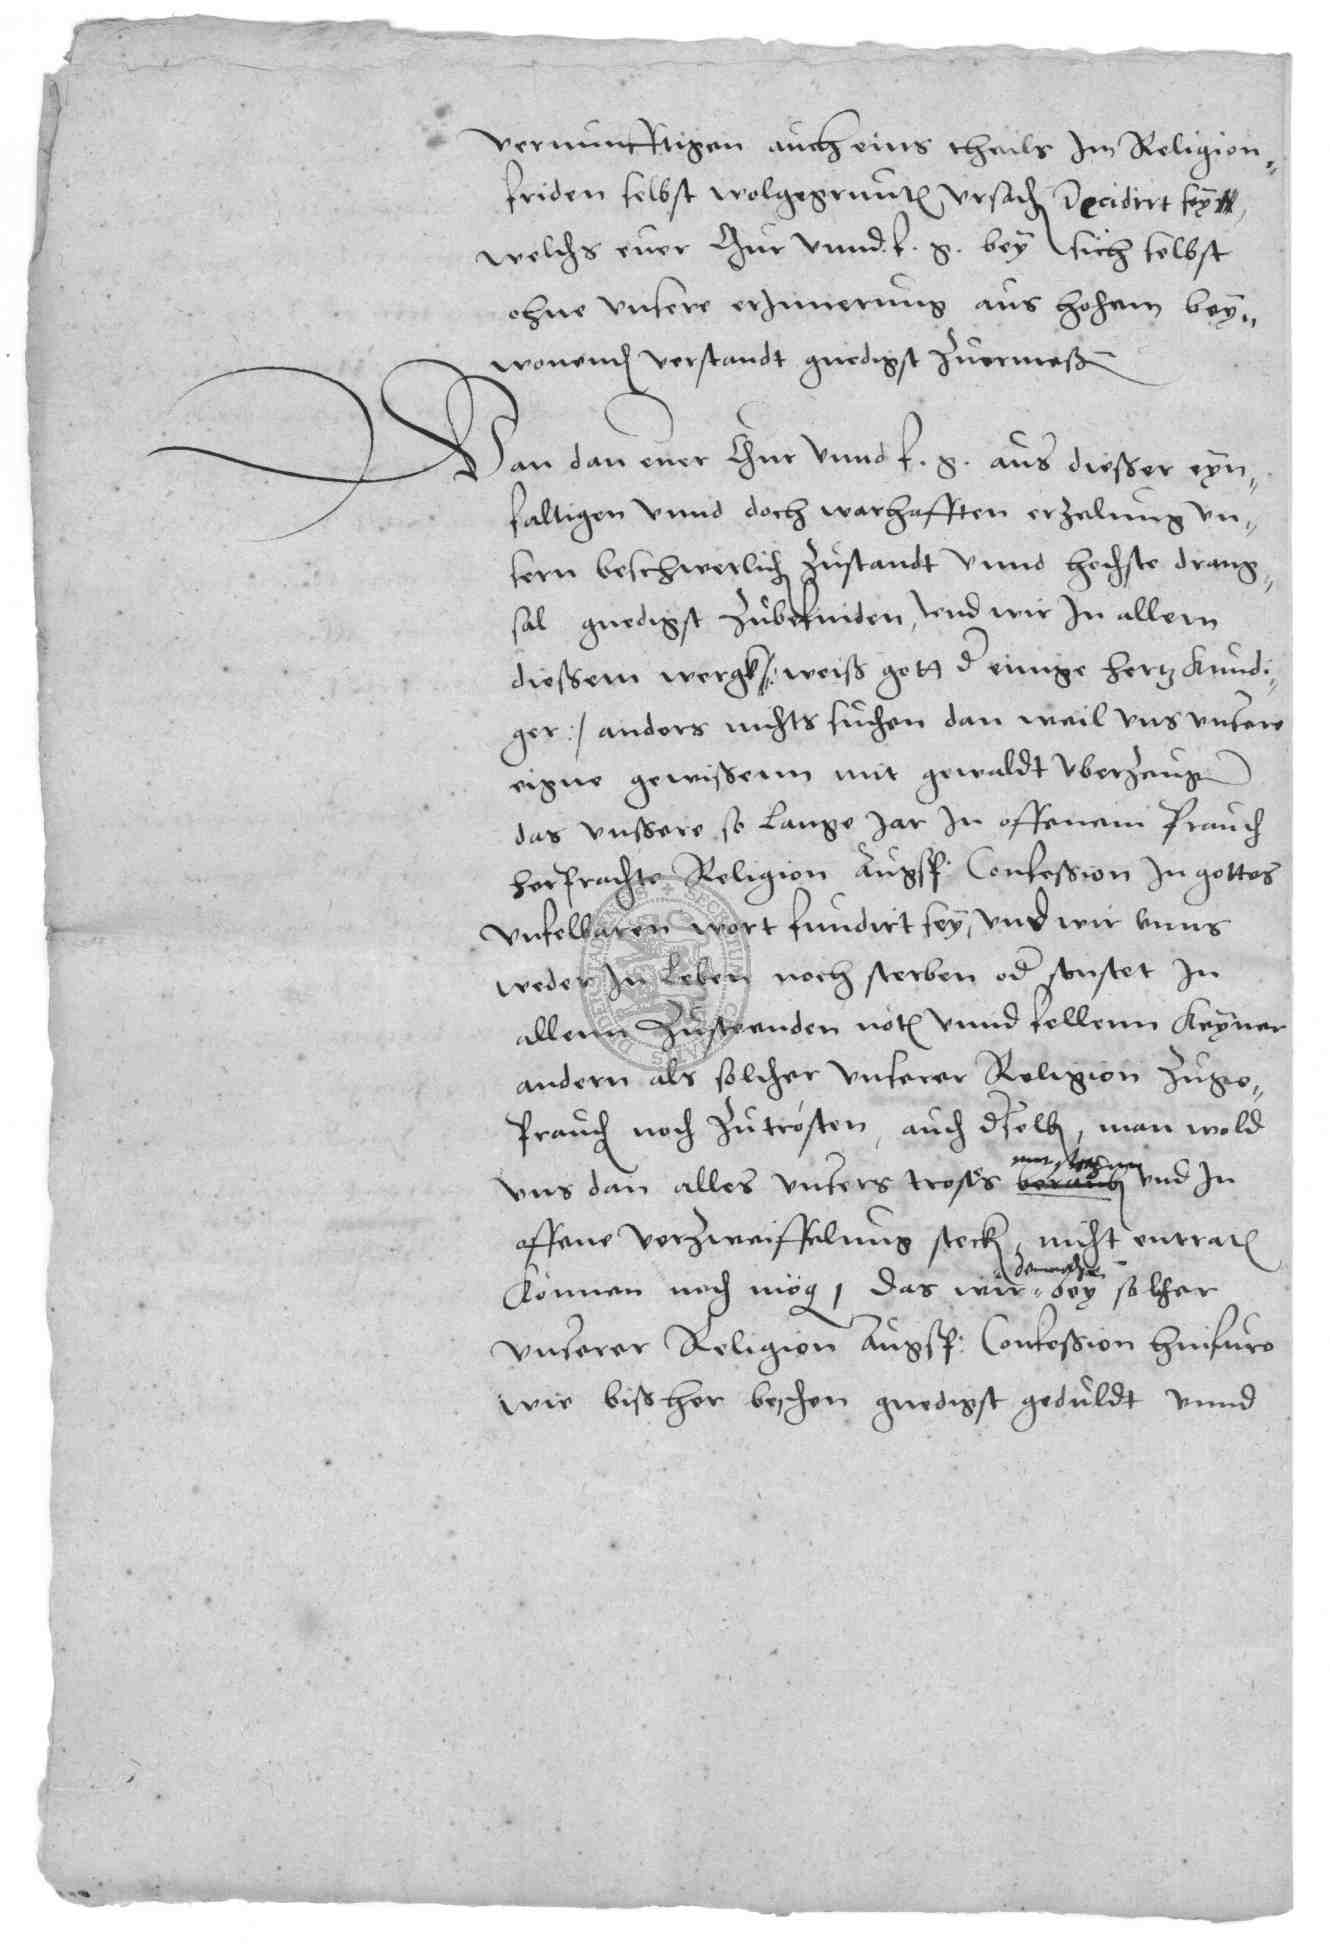 vernunfftigen auch eins theils Im Religion„
friden selbst wolgegrunten ursachen Decidirt sey
welchs euer Chur unnd f. g. bey sich selbst
ohne unsere erInnerung aus hohem bey„
wonenden verstandt gnedigst Zuermessen
Wan dan euer Chur unnd f. g. aus diesser eyn„
faltigen unnd doch warhafften erzelung un„
sern beschwerlichen Zustandt unnd hechste drang„
sal gnedigst Zubefinden, und wir In allem
diessem wergk /: weiß gott der einige hertz kundi„
ger :/ anders nichts suchen dan weil uns unsere
eigne gewissenn mit gewaldt uberzeugen
das unssere so Lange Jar In offenem Prauch
herprachte Religion Augsp: Confession In gottes
unfelbaren wort fundirt sey, und wir unns
weder In Leben noch sterben oder sonstet In
allenn Zusteenden noten unnd fellenn keyner
andern als solcher unserer Religion Zuge„
prauchen noch Zutrösten, auch derselben, man wold
uns dan alles unsers trosts berauben und In
offene verzweiffelung stecken, nicht entraten
können noch mögen, Das wir demnach bey solcher
unserer Religion Augsp: Confession hinfuro
wie bissher beschen gnedigst geduldt unnd